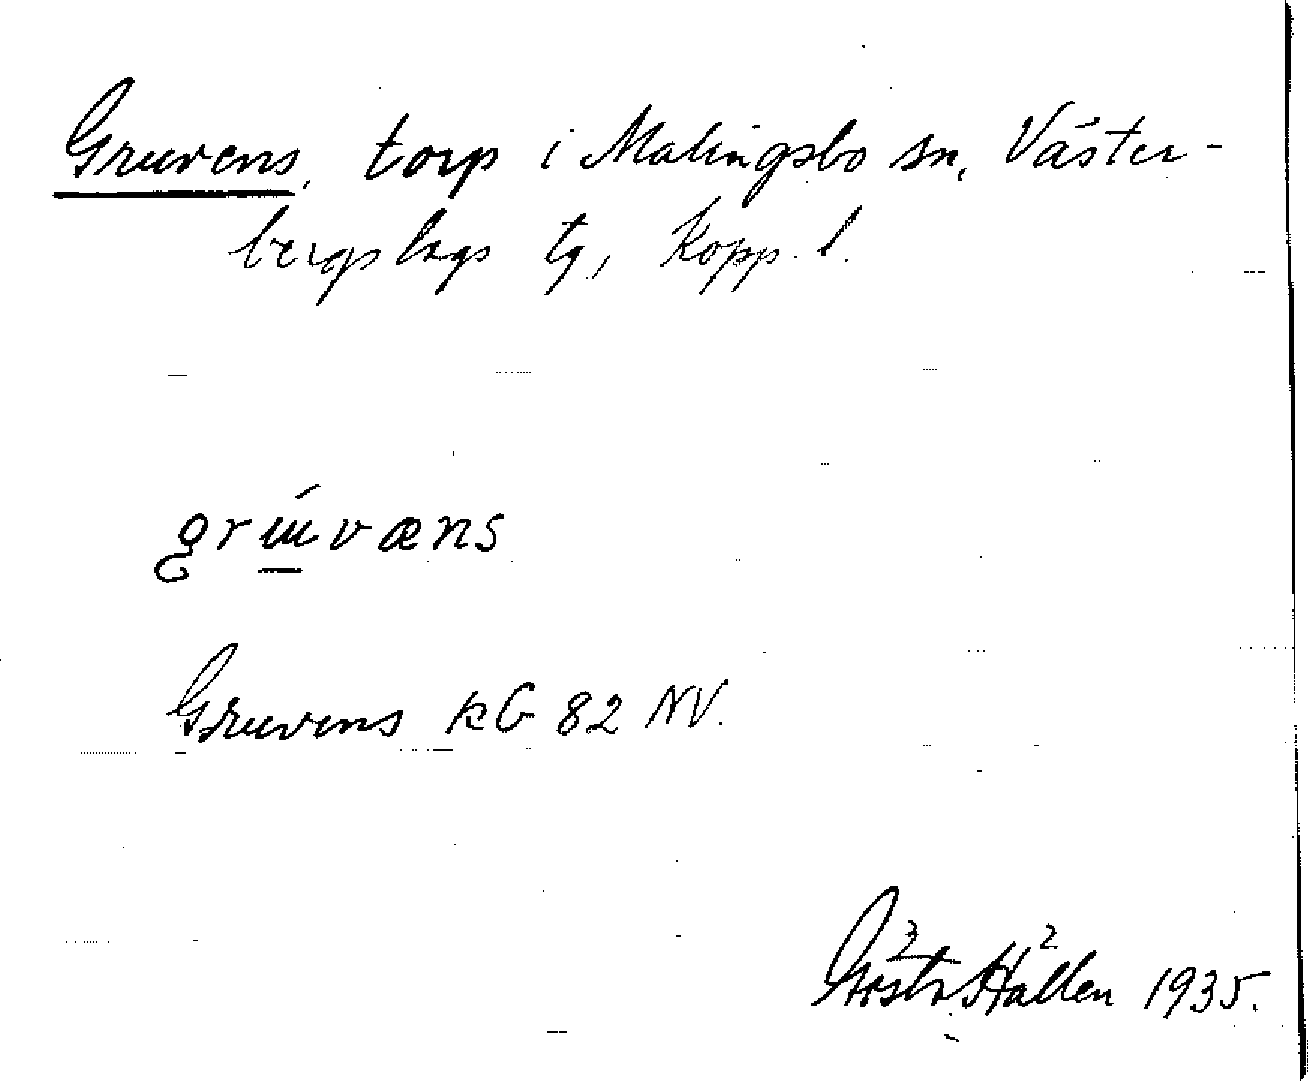 Gruvens, torp i Malingsbo sn, Väster-
bergslags tg, Kopp. l.
grɯ́væns
Gruvens kG 82 NV.
Gösta Hållen 1935.